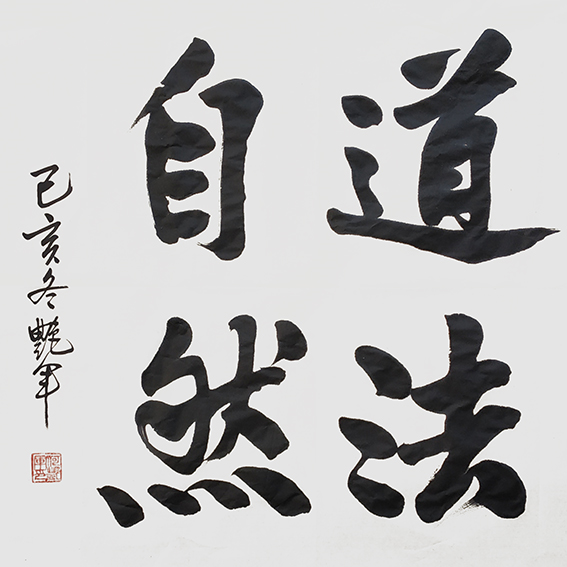 道法
自然
己亥冬艷军